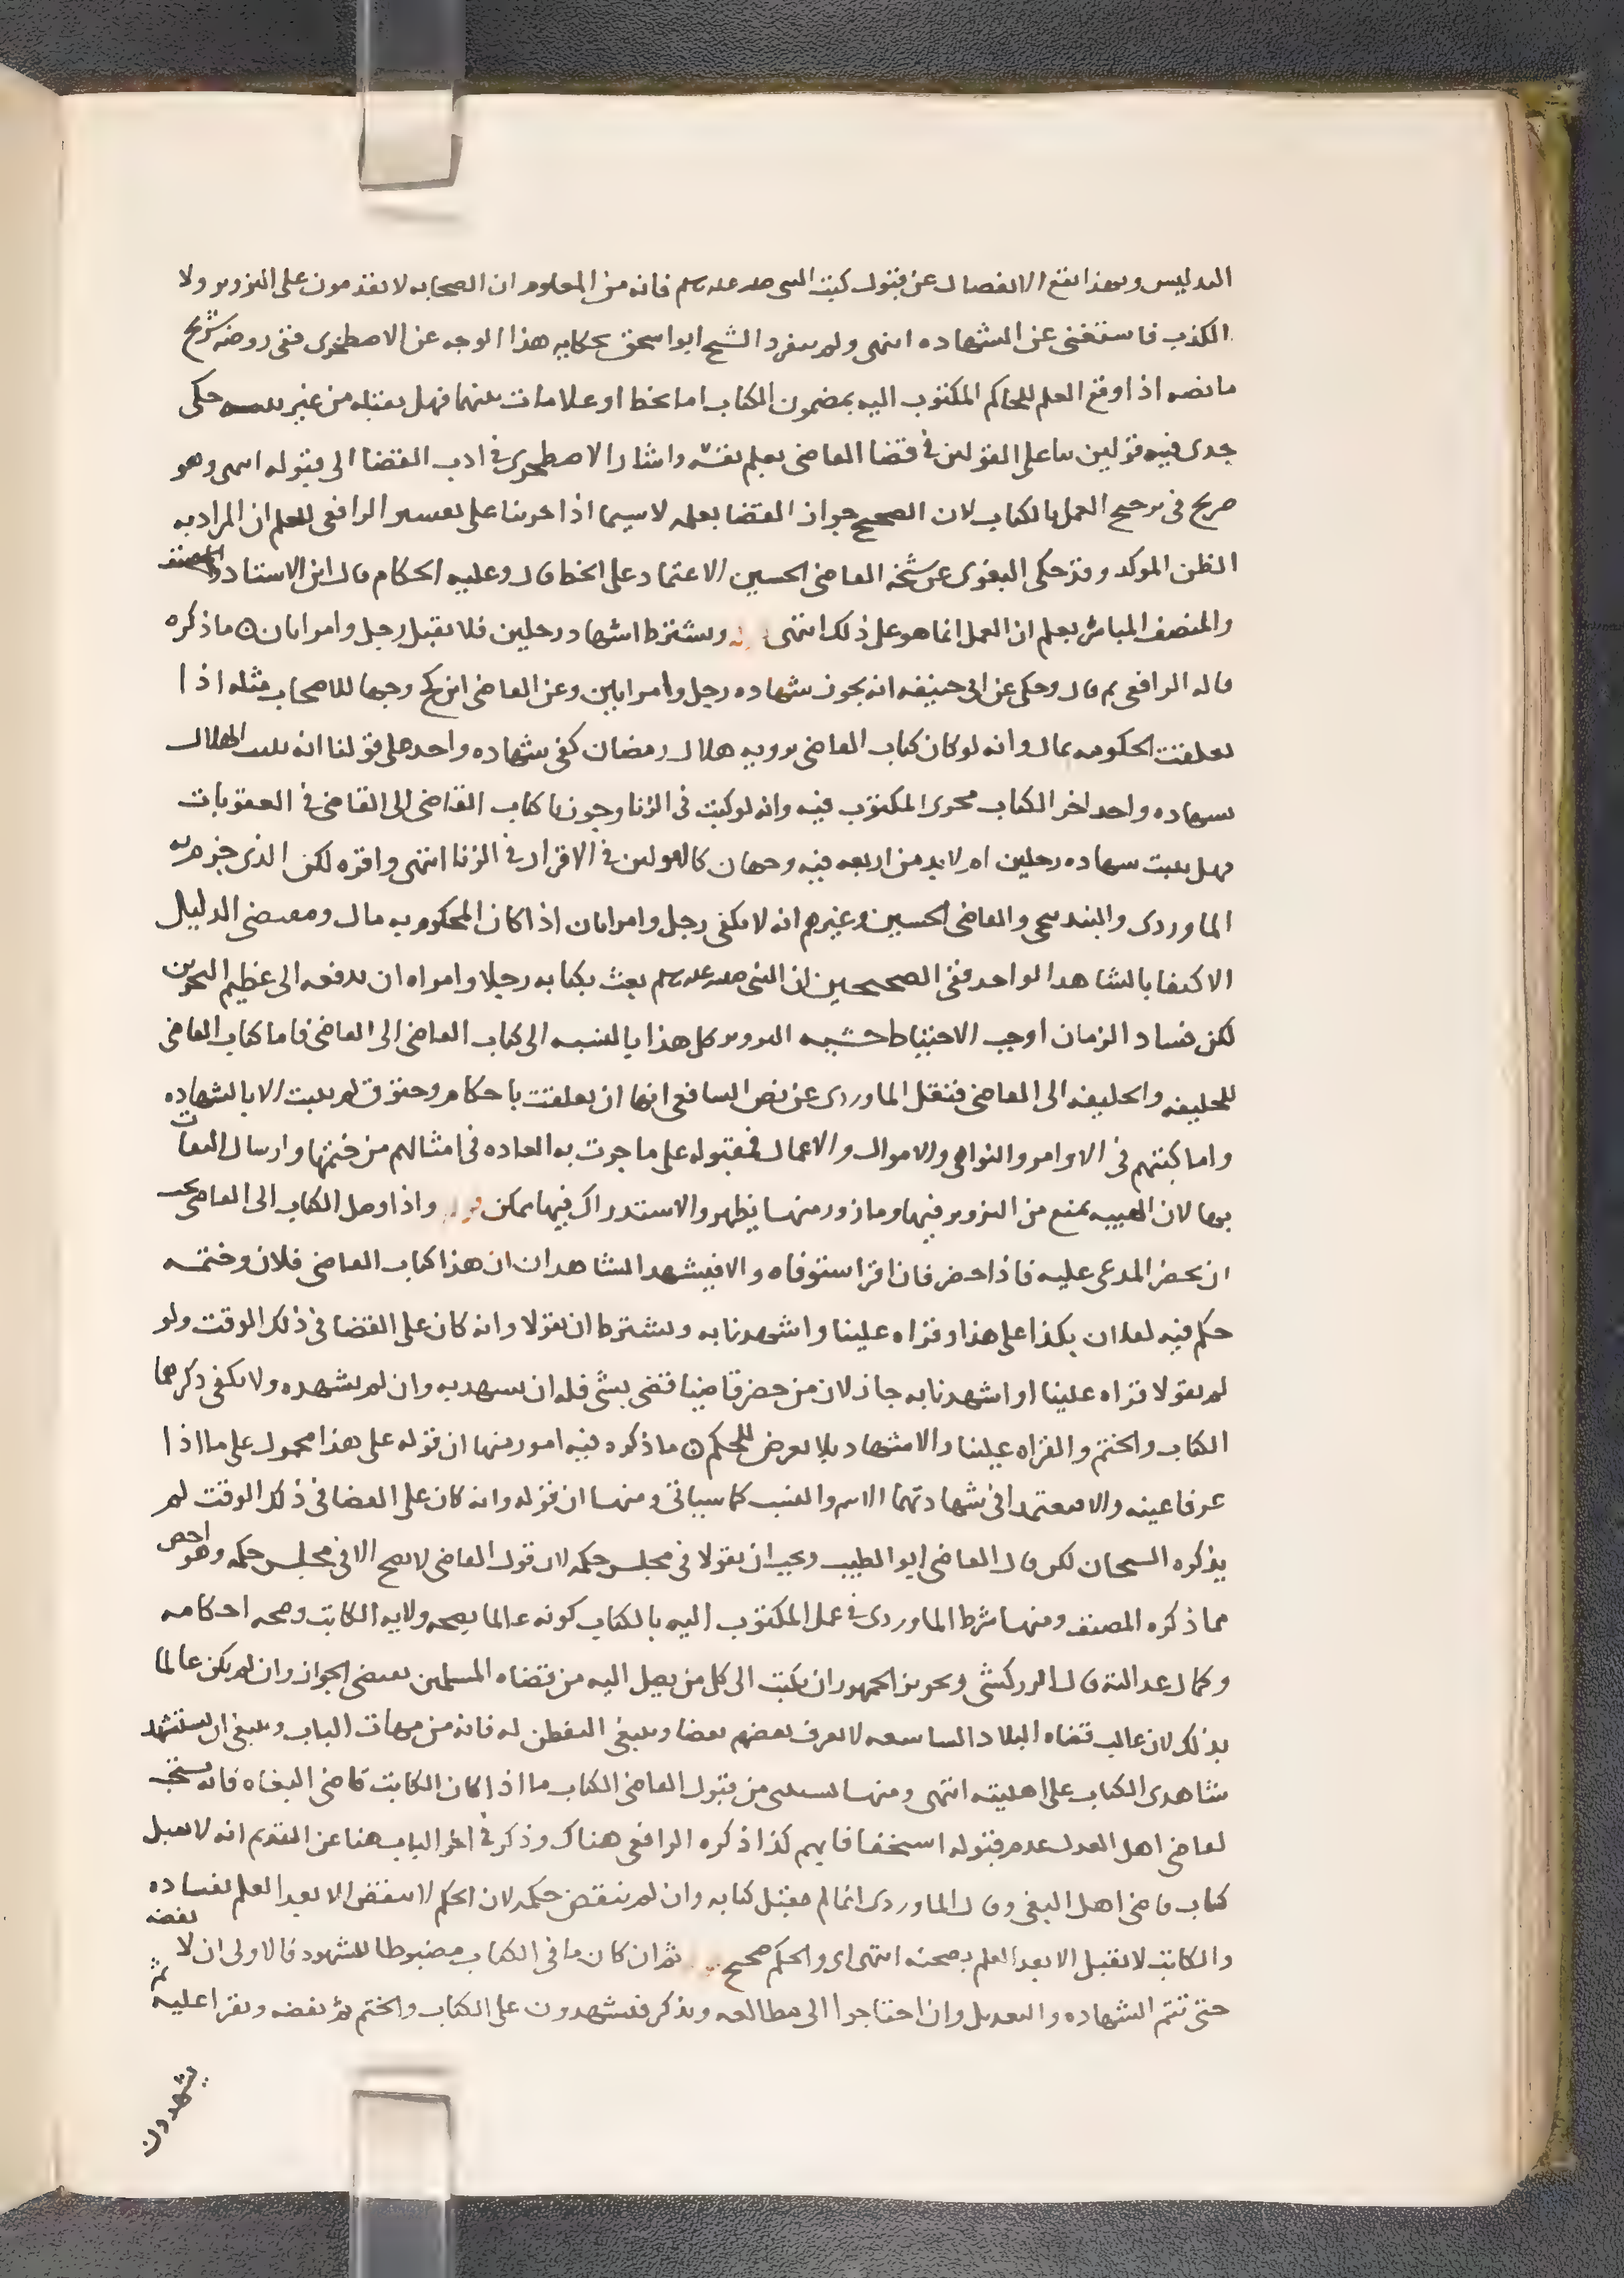 التدليس وبهذا يقع الانفصال عن قبول كتب النبي صلى الله عليه وسلم فانه من المعلوم ان الصحابه لا يقدمون على التزوير ولا
الكذب فاستغنى عن الشهاده انتهى ولم ينفرد الشيخ ابو اسحق بحكايه هذا الوجه عن الاصطخرى ففى روضه شريح
ما نصه اذا وقع العلم للحاكم المكتوب اليه بمضمون الكتاب اما بخط او علامات بينهما فهل يقبله من غير بينه حكى
جدى فيه قولين بنا على القولين فى قضا القاضى بعلم نفسه واشار الاصطخرى فى ادب القضا الى قبوله انتهى وهو
صريح فى ترجيح العمل بالكتاب لان الصحيح جواز القضا بعلمه لا سيما اذا جرينا على تفسير الرافعى للعلم ان المراد به
الظن الموكد وقد حكى البغوى عن شيخه القاضى الحسين الاعتماد على الخط قال وعليه الحكام قال ابن الاستاد
والمنصف المباشر يعلم ان العمل انما هو على ذلك انتهى ويشترط اشهاد رجلين فلا يقبل رجل وامراتان ما ذكره
قاله الرافعى ثم قال وحكى عن ابى حنيفه انه يجوز شهاده رجل وامراتين وعن القاضى ابن كج وجها للاصحاب مثله اذا
تعلقت الحكومه بمال وانه لو كان كتاب القاضى برويه هلال رمضان كفى شهاده واحد على قولنا انه يثبت الهلال
بشهاده واحد اجرا للكتاب مجرى المكتوب فيه وانه لو كتب فى الزنا وجوزنا كتاب القاضى الى القاضى فى العقوبات
فهل يثبت بشهاده رجلين ام لا بد من اربعه فيه وجهان كالقولين فى الاقرار فى الزنا انتهى واقره لكن الذى جزم به
الماوردى والبندنيجى والقاضى الحسين وغيرهم انه لا يكفى رجل وامراتان اذا كان المحكوم به مال ومقتضى الدليل
الاكتفا بالشاهد الواحد ففى الصحيحين ان النبى صلى الله عليه وسلم بعث بكتابه رجلا وامراه ان يدفعه الى عظيم البحرين
لكن فساد الزمان اوجب الاحتياط خشيه التزوير كل هذا بالنسبه الى كتاب القاضى الى القاضى فاما كتاب القاضى
للخليفه والخليفه الى القاضى فنقل الماوردى عن نص الشافعى انها ان تعلقت باحكام وحقوق لم يثبت الا بالشهاده
واما كتبهم فى الاوامر والنواهى والاموال والاعمال فمقبوله على ما جرت به العاده فى امثالهم من ختمها وارسال الثقات
بها لان الهيبه تمنع من التزوير فيها وما زور منها يظهر والاستدراك فيها ممكن واذا وصل الكتاب الى القاضى
ان يحضر المدعى عليه فاذا حضر فان اقر استوفاه والا فيشهد الشاهدان ان هذا كتاب القاضى فلان وختمه
حكم فيه لفلان بكذا على هذا وقراه علينا واشهدنا به ويشترط ان يقولا وانه كان على القضا فى ذلك الوقت ولو
لم يقولا قراه علينا او اشهدنا به جاز لان من حضر قاضيا قضى بشى فله ان يشهد به وان لم يشهده ولا يكفى ذكرهما
الكتاب والختم والقراه علينا والاشهاد بلا تعرض للحكم ما ذكره فيه امور منها ان قوله على هذا محمول على ما اذا
عرفا عينه والا فيعتمدا فى شهادتهما الاسم والنسب كما سياتى ومنها ان قوله وانه كان على القضا فى ذلك الوقت لم
يذكره الشيخان لكن قال القاضى ابو الطيب ويجب ان يقولا فى مجلس حكمه لان قول القاضى لا يصح الا فى مجلس حكمه وهو اخص
مما ذكره المصنف ومنها شرط الماوردى فى عمل المكتوب اليه بالكتاب كونه عالما بصحه ولايه الكاتب وصحه احكامه
وكمال عدالته قال الزركشى وتجويز الجمهور ان يكتب الى كل من يصل اليه من قضاه المسلمين يقتضى الجواز وان لم يكن عالما
بذلك لان غالب قضاه البلاد الشاسعه لا يعرف بعضهم بعضا وينبغى التفطن له فانه من مهمات الباب وينبغى ان يستشهد
شاهدى الكتاب على اهليته انتهى ومنها يستثنى من قبول القاضى الكتاب ما اذا كان الكاتب قاضى البغاه فانه يستحب
لقاضى اهل العدل عدم قبوله استخفافا بهم كذا ذكره الرافعى هناك وذكر فى اخر الباب هنا عن القديم انه لا يقبل
كتاب قاضى اهل البغى وقال الماوردى انما لم يقبل كتابه وان لم ينقض حكمه لان الحكم لا ينقض الا بعد العلم بفساده
والكاتب لا يقبل الا بعد العلم بصحته انتهى اى والحكم صحيح ثم ان كان ما فى الكتاب مضبوطا للشهود فالاولى ان لا يفضه
حتى تتم الشهاده والتعديل وان احتاجوا الى مطالعه وتذكر فيشهدون على الكتاب والختم ثم يفضه ويقرا عليه ثم
يشهدون